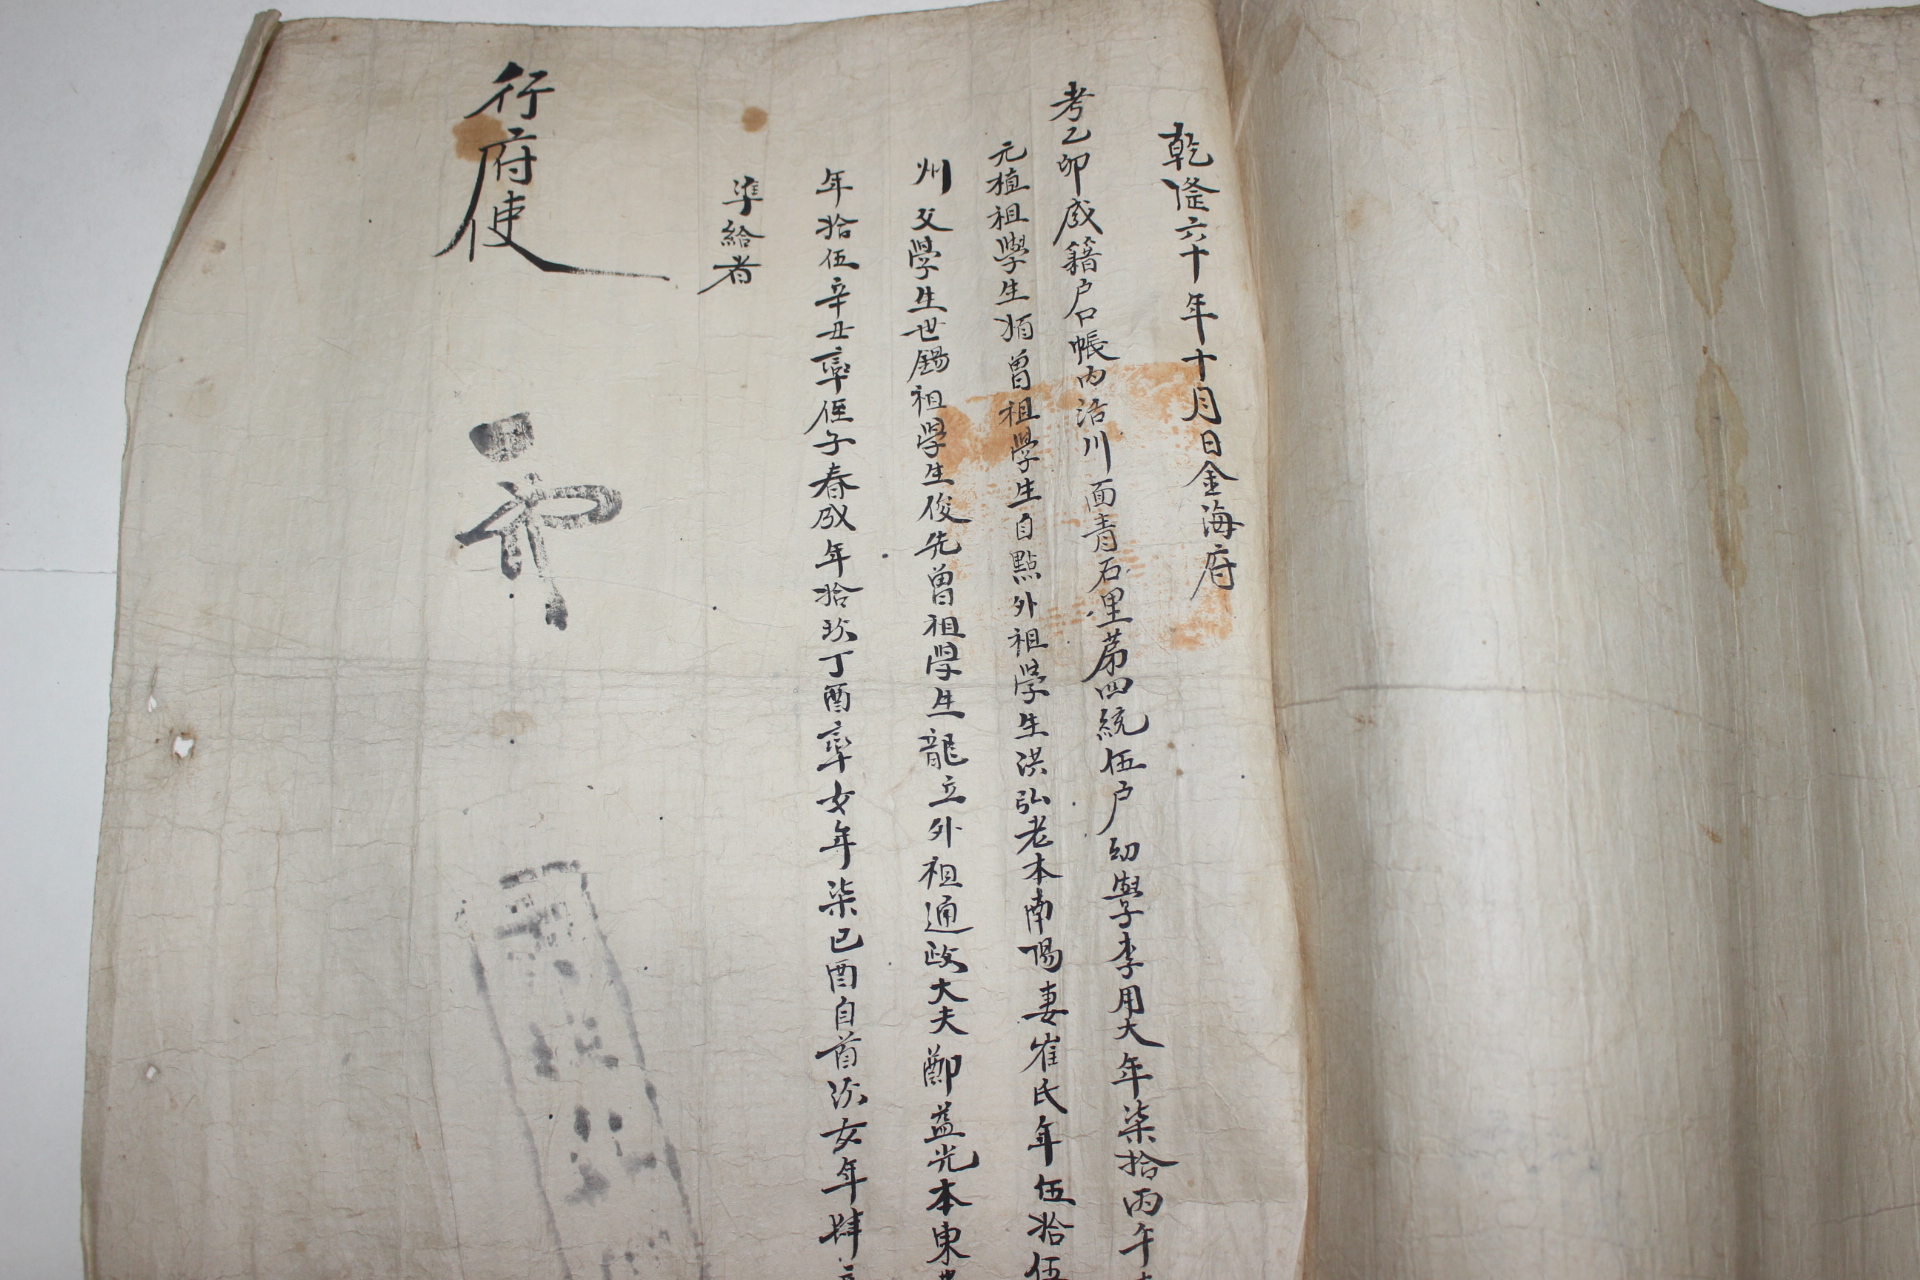 乾隆六十年十月日金海府
考乙卯成籍戶口帳內洽川面青石里第四統伍戶幼學李用大年柒拾丙午
元植祖學生 曾祖學生自點外祖學生洪弘老本南陽妻崔氏年伍拾伍
州父學生世錫祖學生俊先曾祖學生龍立外祖通政大夫鄭益光本東萊
年拾伍辛丑率侄子春成年拾玖丁酉率女年柒己酉自首次女年肆
準給者
行府使